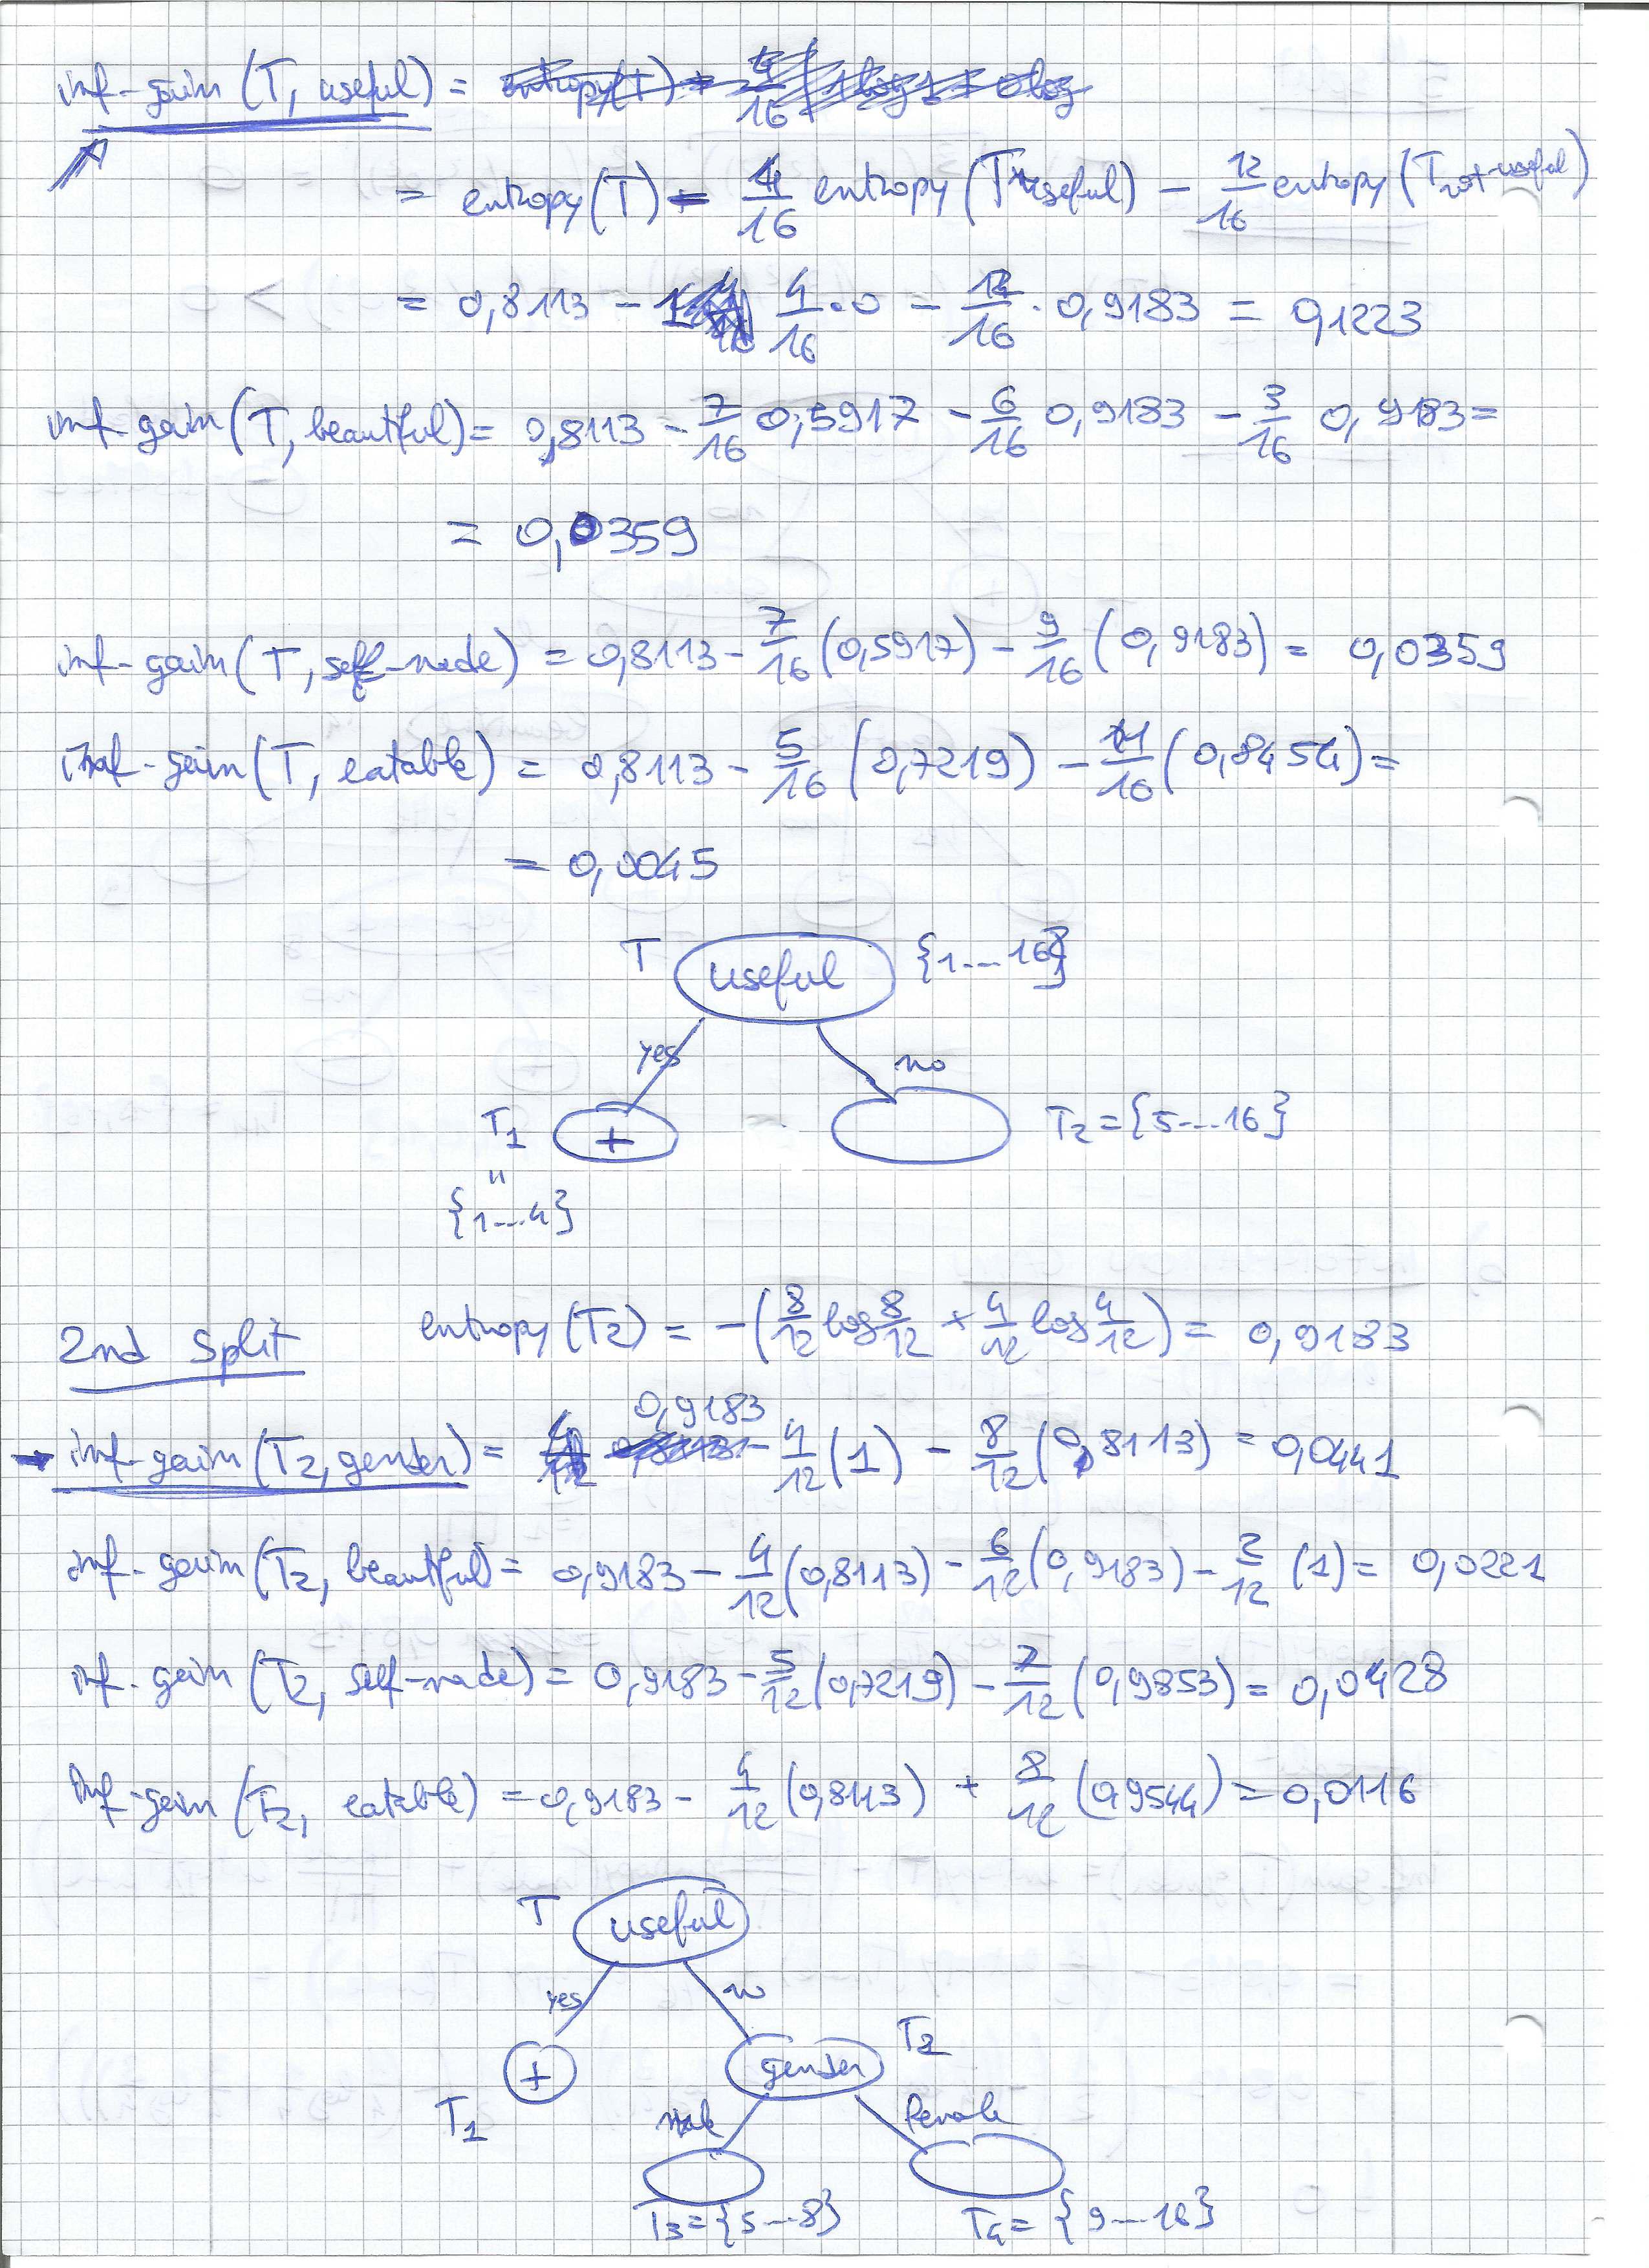 inf-gain (T, useful) =
= entropy (T) - 4/16 entropy (T useful) - 12/16 entropy (T not-useful)
= 0,8113 - 4/16 · 0 - 12/16 · 0,9183 = 0,1223
inf-gain (T, beautiful) = 0,8113 - 7/16 0,5917 - 6/16 0,9183 - 3/16 0,9183 =
= 0,0359
inf-gain (T, self-made) = 0,8113 - 7/16 (0,5917) - 9/16 (0,9183) = 0,0359
inf-gain (T, eatable) = 0,8113 - 5/16 (0,7219) - 11/16 (0,8454) =
= 0,0045
T useful {1...16}
yes no
T1 + T2 = {5...16}
"
{1...4}
2nd Split entropy (T2) = -(8/12 log 8/12 + 4/12 log 4/12) = 0,9183
inf-gain (T2, gender) = 0,9183 - 4/12 (1) - 8/12 (0,8113) = 0,0441
inf-gain (T2, beautiful) = 0,9183 - 4/12 (0,8113) - 6/12 (0,9183) - 2/12 (1) = 0,0221
inf-gain (T2, self-made) = 0,9183 - 5/12 (0,7219) - 7/12 (0,9853) = 0,0428
inf-gain (T2, eatable) = 0,9183 - 4/12 (0,8113) + 8/12 (0,9544) = 0,0116
T useful
yes no
+ gender T2
T1 male female
T3 = {5...8} T4 = {9...16}